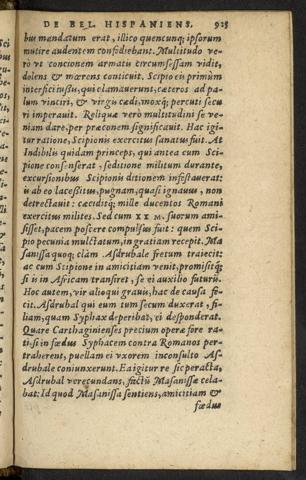 DE BEL. HISPANIENS. 925
bus mandatum erat, illico quencunq; ipsorum
mutire audentem confodiebant. Multitudo ve
rò vt concionem armatis circumsessam vidit,
dolens & mœrens conticuit. Scipio eis primùm
interfici iussis, qui clamauerunt, cæteros ad pa
lum vinciri, & virgis cædi, moxq; percuti secu
ri imperauit. Reliquæ verò multitudini se ve-
niam dare, per præconem significauit. Hac igi-
tur ratione, Scipionis exercitus sanatus fuit. At
Indibilis quidam princeps, qui antea cum Sci-
pione consenserat, seditione militum durante,
excursionibus Scipionis ditionem infestauerat:
is ab eo lacessitus, pugnam, quasi ignauus, non
detrectauit: cæciditq; mille ducentos Romani
exercitus milites. Sed cum XX M. suorum ami-
sisset, pacem poscere compulsus fuit: quem Sci-
pio pecunia mulctatum, in gratiam recepit. Ma
sanissa quoq; clàm Asdrubale fretum traiecit:
ac cum Scipione in amicitiam venit, promisitq;
si is in Africam transiret, se ei auxilio futurũ.
Hoc autem, vir alioqui gratus, hac de causa fe-
cit. Asdrubal qui eum tum secum duxerat, fi-
liam, quam Syphax deperibat, ei desponderat.
Quare Carthaginienses precium operæ fore ra-
ti, si in fœdus Syphacem contra Romanos per-
traherent, puellam ei vxorem inconsulto As-
drubale coniunxerunt. Ea igitur re sic peracta,
Asdrubal verecundans, factũ Masanissæ cela-
bat: Id quod Masanissa sentiens, amicitiam &
fœdus